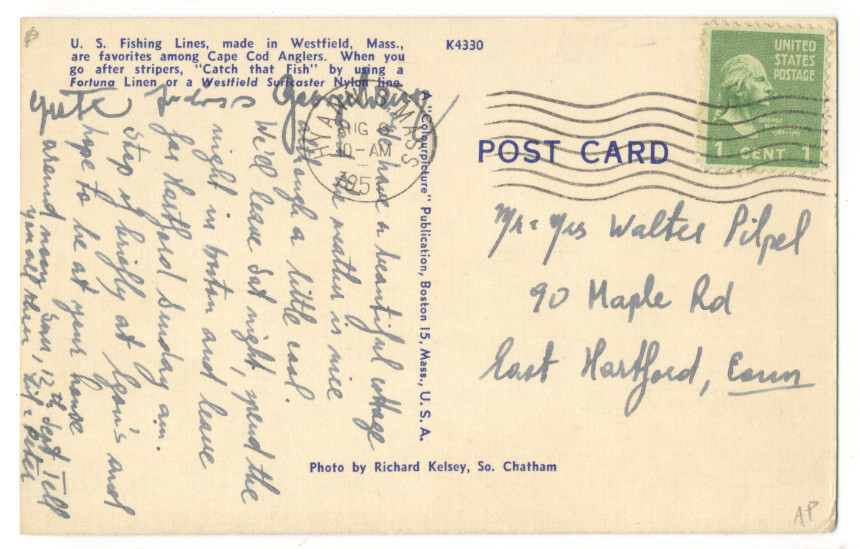 U. S. Fishing Lines, made in Westfield, Mass.,
are favorites among Cape Cod Anglers. When you
go after stripers, "Catch that Fish" by using a
Fortuna Linen or a Westfield Surfcaster Nylon line.
K4330
UNITED
STATES
POSTAGE
1 CENT 1
HYANNIS MASS
AUG
10-AM
195
POST CARD
have a beautiful cottage
the weather is nice
although a little cool.
We'd leave Sat night, spend the
night in Boston and leave
for Hartford Sunday am.
Stop briefly at and
hope to be at your house
around noon, 12th Tell
you all then
Peter
A "Colourpicture" Publication, Boston 15, Mass., U. S. A.
Mr = Mrs Walter Pilpel
90 Maple Rd
East Hartford, Conn
Photo by Richard Kelsey, So. Chatham
AP